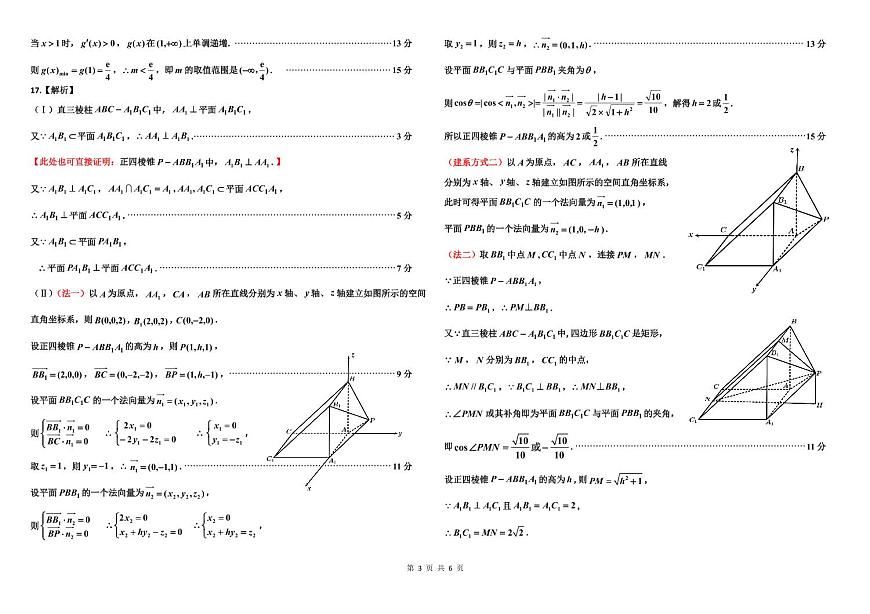 当 x > 1 时，g′(x) > 0，g(x) 在 (1,+∞) 上单调递增. ……13 分
则 g(x)min = g(1) = e/4，∴ m < e/4，即 m 的取值范围是 (−∞, e/4). ……15 分
17.【解析】
（Ⅰ）直三棱柱 ABC − A₁B₁C₁ 中，AA₁ ⊥ 平面 A₁B₁C₁，
又∵ A₁B₁ ⊂ 平面 A₁B₁C₁，∴ AA₁ ⊥ A₁B₁. ……3 分
【此处也可直接证明：正四棱锥 P − ABB₁A₁ 中，A₁B₁ ⊥ AA₁.】
又∵ A₁B₁ ⊥ A₁C₁，AA₁ ∩ A₁C₁ = A₁，AA₁, A₁C₁ ⊂ 平面 ACC₁A₁，
∴ A₁B₁ ⊥ 平面 ACC₁A₁. ……5 分
又∵ A₁B₁ ⊂ 平面 PA₁B₁，
∴ 平面 PA₁B₁ ⊥ 平面 ACC₁A₁. ……7 分
（Ⅱ）（法一）以 A 为原点，AA₁，CA，AB 所在直线分别为 x 轴、y 轴、z 轴建立如图所示的空间
直角坐标系，则 B(0,0,2)，B₁(2,0,2)，C(0,−2,0).
设正四棱锥 P − ABB₁A₁ 的高为 h，则 P(1,h,1)，
BB₁ = (2,0,0)，BC = (0,−2,−2)，BP = (1,h,−1)，……9 分
设平面 BB₁C₁C 的一个法向量为 n₁ = (x₁, y₁, z₁).
则 { BB₁ · n₁ = 0 BC · n₁ = 0 ∴ { 2x₁ = 0 −2y₁ − 2z₁ = 0 ∴ { x₁ = 0 y₁ = −z₁ ，
取 z₁ = 1，则 y₁ = −1，∴ n₁ = (0,−1,1). ……11 分
设平面 PBB₁ 的一个法向量为 n₂ = (x₂, y₂, z₂)，
则 { BB₁ · n₂ = 0 BP · n₂ = 0 ∴ { 2x₂ = 0 x₂ + hy₂ − z₂ = 0 ∴ { x₂ = 0 x₂ + hy₂ = z₂ ，
z
B
B₁
P
C
A
y
C₁
A₁
x
取 y₂ = 1，则 z₂ = h，∴ n₂ = (0,1,h). ……13 分
设平面 BB₁C₁C 与平面 PBB₁ 夹角为 θ，
则 cos θ = |cos < n₁, n₂ >| = |n₁ · n₂| / |n₁||n₂| = |h − 1| / √2 × √1 + h² = √10 / 10，解得 h = 2 或 1/2.
所以正四棱锥 P − ABB₁A₁ 的高为 2 或 1/2. ……15 分
（建系方式二）以 A 为原点，AC，AA₁，AB 所在直线
分别为 x 轴、y 轴、z 轴建立如图所示的空间直角坐标系，
此时可得平面 BB₁C₁C 的一个法向量为 n₁ = (1,0,1)，
平面 PBB₁ 的一个法向量为 n₂ = (1,0,−h).
z
B
B₁
P
x
C
A
C₁
A₁
y
（法二）取 BB₁ 中点 M，CC₁ 中点 N，连接 PM，MN.
∵ 正四棱锥 P − ABB₁A₁，
∴ PB = PB₁，∴ PM ⊥ BB₁.
又∵ 直三棱柱 ABC − A₁B₁C₁ 中，四边形 BB₁C₁C 是矩形，
∵ M，N 分别为 BB₁，CC₁ 的中点，
∴ MN // B₁C₁，∵ B₁C₁ ⊥ BB₁，∴ MN ⊥ BB₁，
∴ ∠PMN 或其补角即为平面 BB₁C₁C 与平面 PBB₁ 的夹角，
即 cos ∠PMN = √10 / 10 或 − √10 / 10. ……11 分
设正四棱锥 P − ABB₁A₁ 的高为 h，则 PM = √h² + 1，
∵ A₁B₁ ⊥ A₁C₁ 且 A₁B₁ = A₁C₁ = 2，
∴ B₁C₁ = MN = 2√2.
B
M
B₁
P
C
A
N
H
C₁
A₁
第 3 页 共 6 页